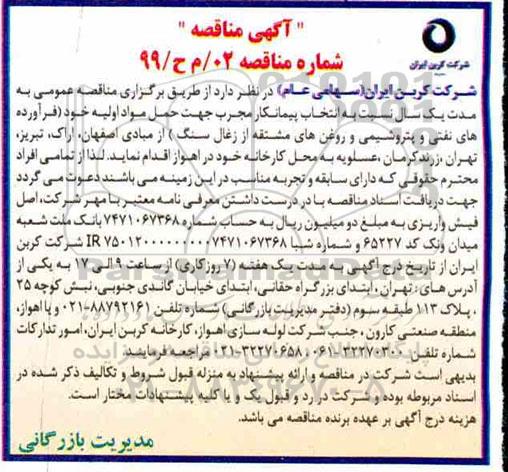 " آگهی مناقصه "
شماره مناقصه ۰۲/م ح/۹۹
شرکت کربن ایران
شرکت کربن ایران(سهامی عام) در نظر دارد از طریق برگزاری مناقصه عمومی به
مدت یک سال نسبت به انتخاب پیمانکار مجرب جهت حمل مواد اولیه خود (فرآورده
های نفتی و پتروشیمی و روغن های مشتقه از زغال سنگ ) از مبادی اصفهان، اراک، تبریز،
تهران ،زرند کرمان ،عسلویه به محل کارخانه خود در اهواز اقدام نماید. لذا از تمامی افراد
محترم حقوقی که دارای سابقه و تجربه مناسب در این زمینه می باشند دعوت می گردد
جهت دریافت اسناد مناقصه با در دست داشتن معرفی نامه معتبر با مهر شرکت، اصل
فیش واریزی به مبلغ دو میلیون ریال به حساب شماره ۷۴۷۱۰۶۷۳۶۸ بانک ملت شعبه
میدان ونک کد ۶۵۲۲۷ و شماره شبا IR ۷۵۰۱۲۰۰۰۰۰۰۰۰۰۷۴۷۱۰۶۷۳۶۸ شرکت کربن
ایران از تاریخ درج آگهی به مدت یک هفته (۷ روز کاری) از ساعت ۹ الی ۱۷ به یکی از
آدرس های : تهران ، ابتدای بزرگراه حقانی، ابتدای خیابان گاندی جنوبی، نبش کوچه ۲۵
، پلاک ۱۱۳ طبقه سوم (دفتر مدیریت بازرگانی) شماره تلفن ۸۸۷۹۲۱۶۱-۰۲۱ و یا اهواز،
منطقه صنعتی کارون ، جنب شرکت لوله سازی اهواز، کارخانه کربن ایران، امور تدارکات
شماره تلفن مراجعه فرمایند
بدیهی است شرکت در مناقصه و ارائه پیشنهاد به منزله قبول شروط و تکالیف ذکر شده در
اسناد مربوطه بوده و شرکت در رد و قبول یک و یا کلیه پیشنهادات مختار است.
هزینه درج آگهی بر عهده برنده مناقصه می باشد.
مدیریت بازرگانی